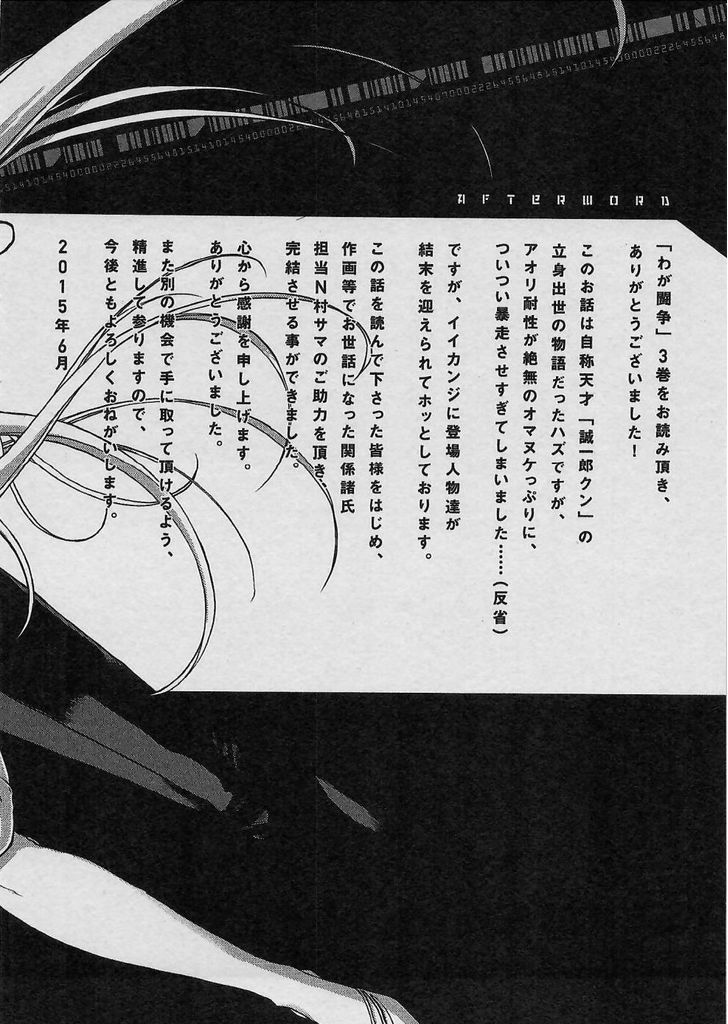 AFTERWORD
「わが闘争」3巻をお読み頂き、
ありがとうございました！
このお話は自称天才「誠一郎クン」の
立身出世の物語だったハズですが、
アオリ耐性が絶無のオマヌケっぷりに、
ついつい暴走させすぎてしまいました……(反省)
ですが、イイカンジに登場人物達が
結末を迎えられてホッとしております。
この話を読んで下さった皆様をはじめ、
作画等でお世話になった関係諸氏
担当N村サマのご助力を頂き、
完結させる事ができました。
心から感謝を申し上げます。
ありがとうございました。
また別の機会で手に取って頂けるよう、
精進して参りますので、
今後ともよろしくおねがいします。
2015年6月